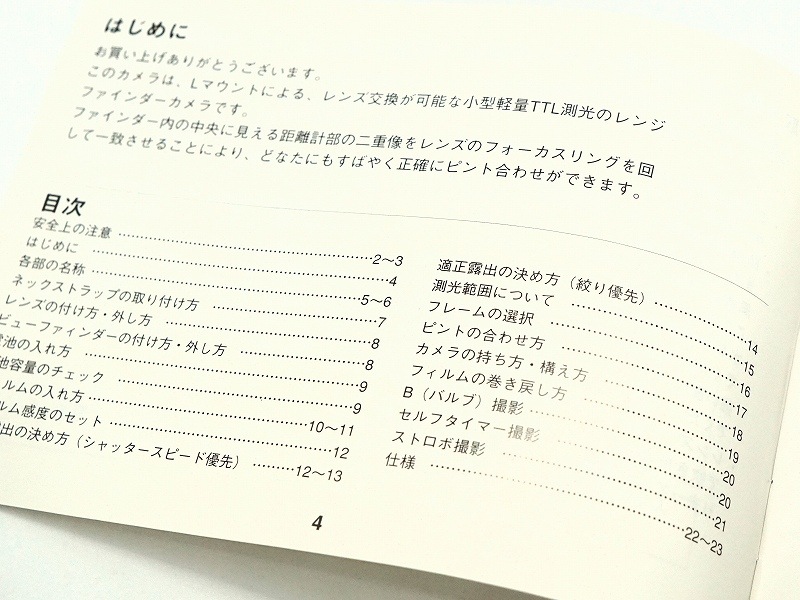 はじめに
お買い上げありがとうございます。
このカメラは、Lマウントによる、レンズ交換が可能な小型軽量TTL測光のレンジ
ファインダーカメラです。
ファインダー内の中央に見える距離計部の二重像をレンズのフォーカスリングを回
して一致させることにより、どなたにもすばやく正確にピント合わせができます。
目次
安全上の注意 2〜3
はじめに 4
各部の名称 5〜6
ネックストラップの取り付け方 7
レンズの付け方・外し方 8
ビューファィンダーの付け方・外し方 8
電池の入れ方 9
池容量のチェック 9
ルムの入れ方 10〜11
ルム感度のセット 12
出の決め方（シャッタースピード優先） 12〜13
適正露出の決め方（絞り優先） 14
測光範囲について 15
フレームの選択 16
ピントの合わせ方 17
カメラの持ち方・構え方 18
フィルムの巻き戻し方 19
B（バルブ）撮影 20
セルフタイマー撮影 20
ストロボ撮影 21
仕様 22〜23
4